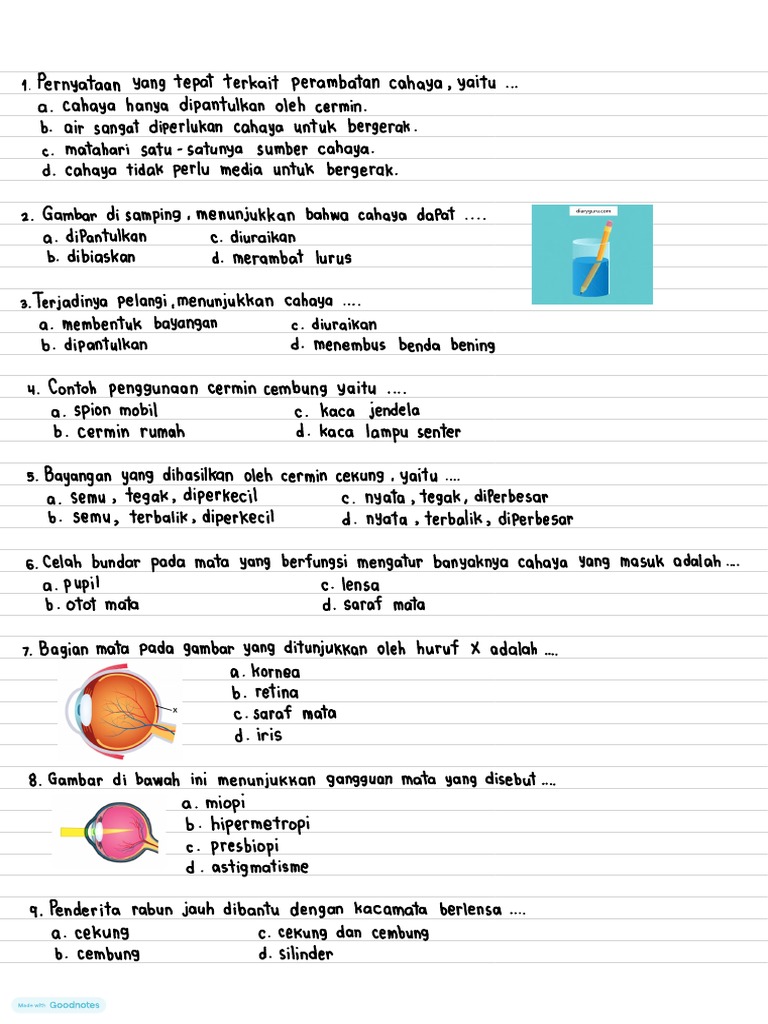 1. Pernyataan yang tepat terkait perambatan cahaya, yaitu ...
a. cahaya hanya dipantulkan oleh cermin.
b. air sangat diperlukan cahaya untuk bergerak.
c. matahari satu-satunya sumber cahaya.
d. cahaya tidak perlu media untuk bergerak.
2. Gambar di samping, menunjukkan bahwa cahaya dapat ....
a. dipantulkan c. diuraikan
b. dibiaskan d. merambat lurus
diaryguru.com
3. Terjadinya pelangi, menunjukkan cahaya ....
a. membentuk bayangan c. diuraikan
b. dipantulkan d. menembus benda bening
4. Contoh penggunaan cermin cembung yaitu ....
a. spion mobil c. kaca jendela
b. cermin rumah d. kaca lampu senter
5. Bayangan yang dihasilkan oleh cermin cekung, yaitu ....
a. semu, tegak, diperkecil c. nyata, tegak, diperbesar
b. semu, terbalik, diperkecil d. nyata, terbalik, diperbesar
6. Celah bundar pada mata yang berfungsi mengatur banyaknya cahaya yang masuk adalah ....
a. pupil c. lensa
b. otot mata d. saraf mata
7. Bagian mata pada gambar yang ditunjukkan oleh huruf X adalah ....
a. kornea
b. retina
X
c. saraf mata
d. iris
8. Gambar di bawah ini menunjukkan gangguan mata yang disebut ....
a. miopi
b. hipermetropi
c. presbiopi
d. astigmatisme
9. Penderita rabun jauh dibantu dengan kacamata berlensa ....
a. cekung c. cekung dan cembung
b. cembung d. silinder
Made with Goodnotes